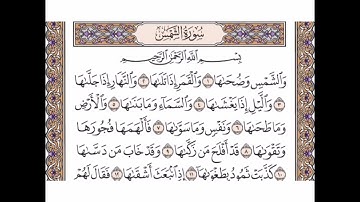 سُورَةُ الشَّمْسِ
بِسْمِ اللَّهِ الرَّحْمَٰنِ الرَّحِيمِ
وَالشَّمْسِ وَضُحَىٰهَا ١ وَالْقَمَرِ إِذَا تَلَىٰهَا ٢ وَالنَّهَارِ إِذَا جَلَّىٰهَا
٣ وَالَّيْلِ إِذَا يَغْشَىٰهَا ٤ وَالسَّمَآءِ وَمَا بَنَىٰهَا ٥ وَالْأَرْضِ
وَمَا طَحَىٰهَا ٦ وَنَفْسٍ وَمَا سَوَّىٰهَا ٧ فَأَلْهَمَهَا فُجُورَهَا
وَتَقْوَىٰهَا ٨ قَدْ أَفْلَحَ مَن زَكَّىٰهَا ٩ وَقَدْ خَابَ مَن دَسَّىٰهَا
١٠ كَذَّبَتْ ثَمُودُ بِطَغْوَىٰهَآ ١١ إِذِ انۢبَعَثَ أَشْقَىٰهَا ١٢ فَقَالَ لَهُمْ